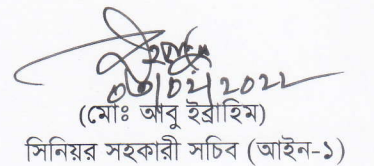 ০৩/০২/২০২২
(মোঃ আবু ইব্রাহিম)
সিনিয়র সহকারী সচিব (আইন-১)